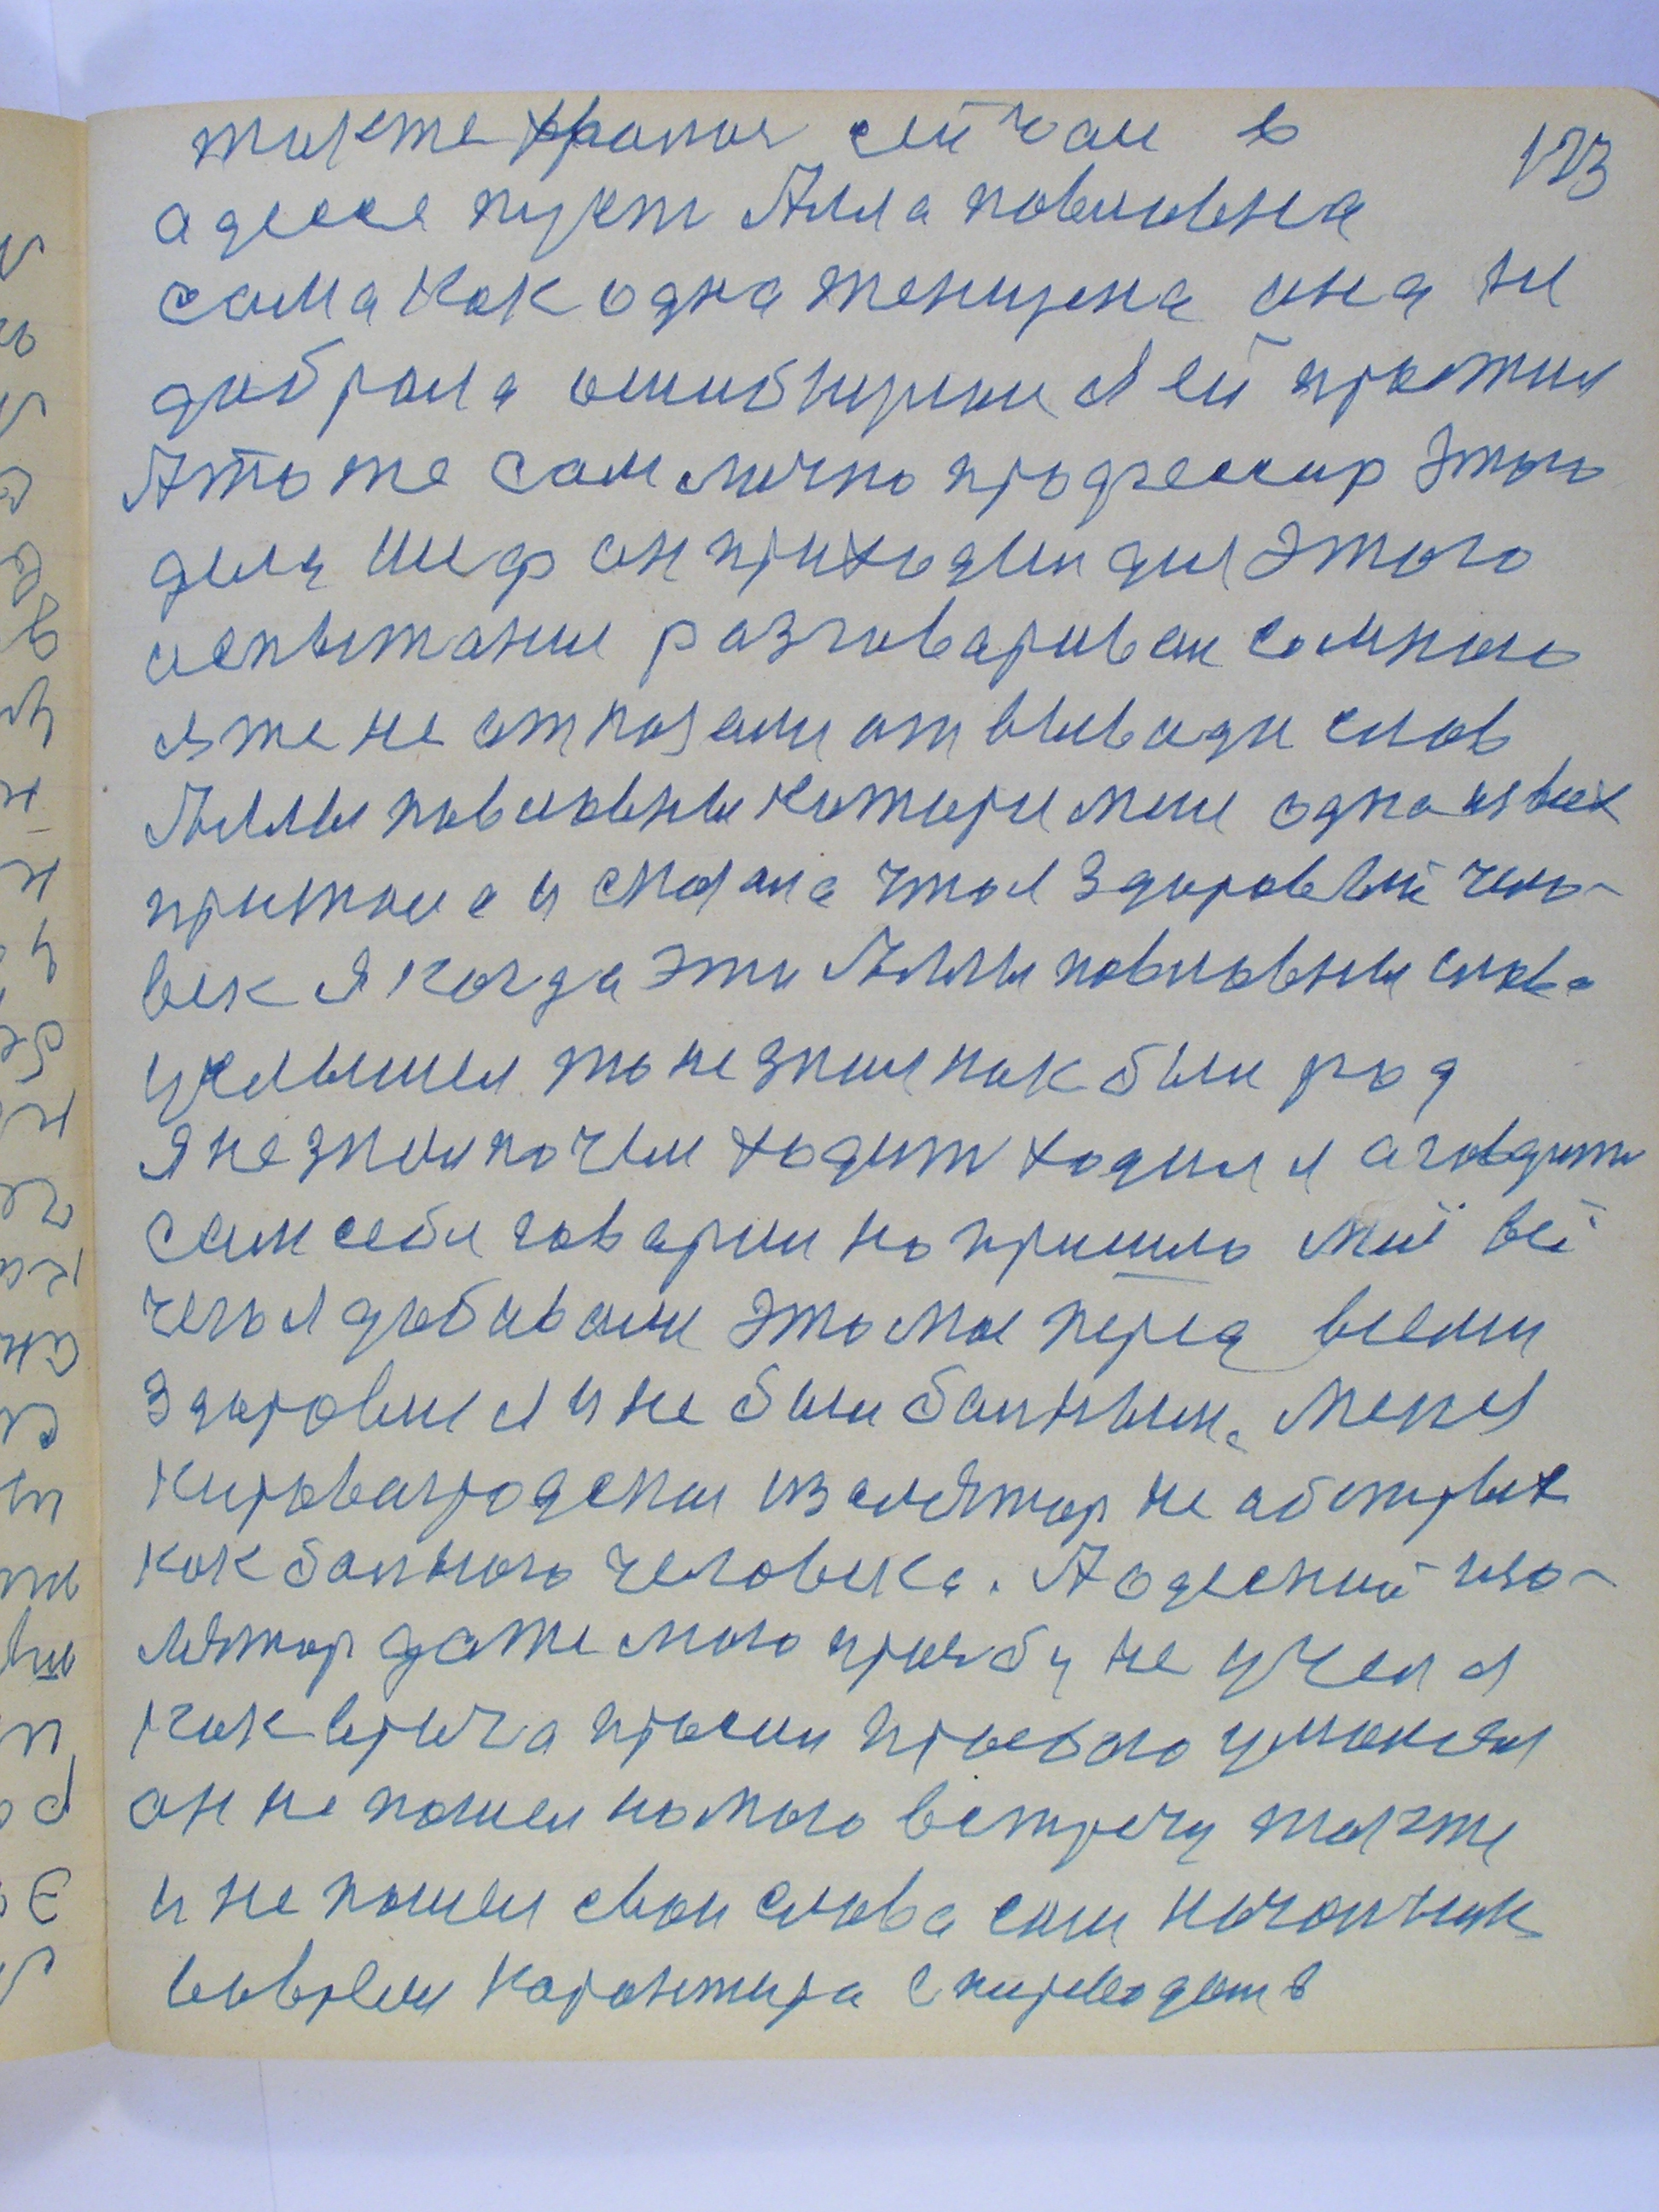 123
также храпоя сейчас в
адессе пусть Алла повловна
сама как одна женщена она ни
дабрала ошибнулси я ей прастил
А то же сам лично прафессир этого
дела шеф он приходил для этого
испытание разговаривал сомною
я же не отказалси от выводи слов
Аллы повловны катори мене одна из всех
признала и сказала что я здоровый чело-
век Я когда эти Аллы повловны слова
услышел то не знал как был рад
Я не знал почем ходит ходил я а говдит
сам себя говорил но пришло мне всё
чего я добивалси это мое перед всеми
здоровие я и не был больным. Меня
кировагродский изолятор не абстрых
как больного человека. А одеский изо-
лятор даже мою прозьбу не учел я
как врича просил просбою умолял
он не пошел на мою встречу так же
и не пошел свои слова сам начальник
вовремя карантира с переводом в